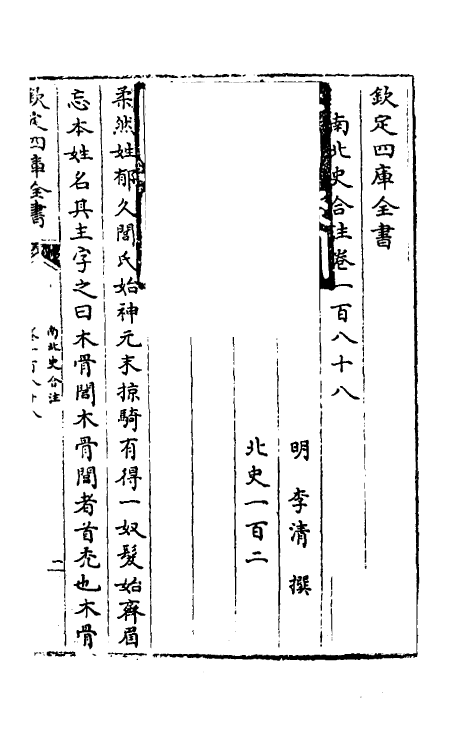 欽定四庫全書
南北史合注卷一百八十八
明 李清 撰
北史一百二
柔然姓郁久閭氏始神元末掠騎有得一奴髮始齊眉
忘本姓名其主字之曰木骨閭木骨閭者首禿也木骨
欽定四庫全書
南北史合注